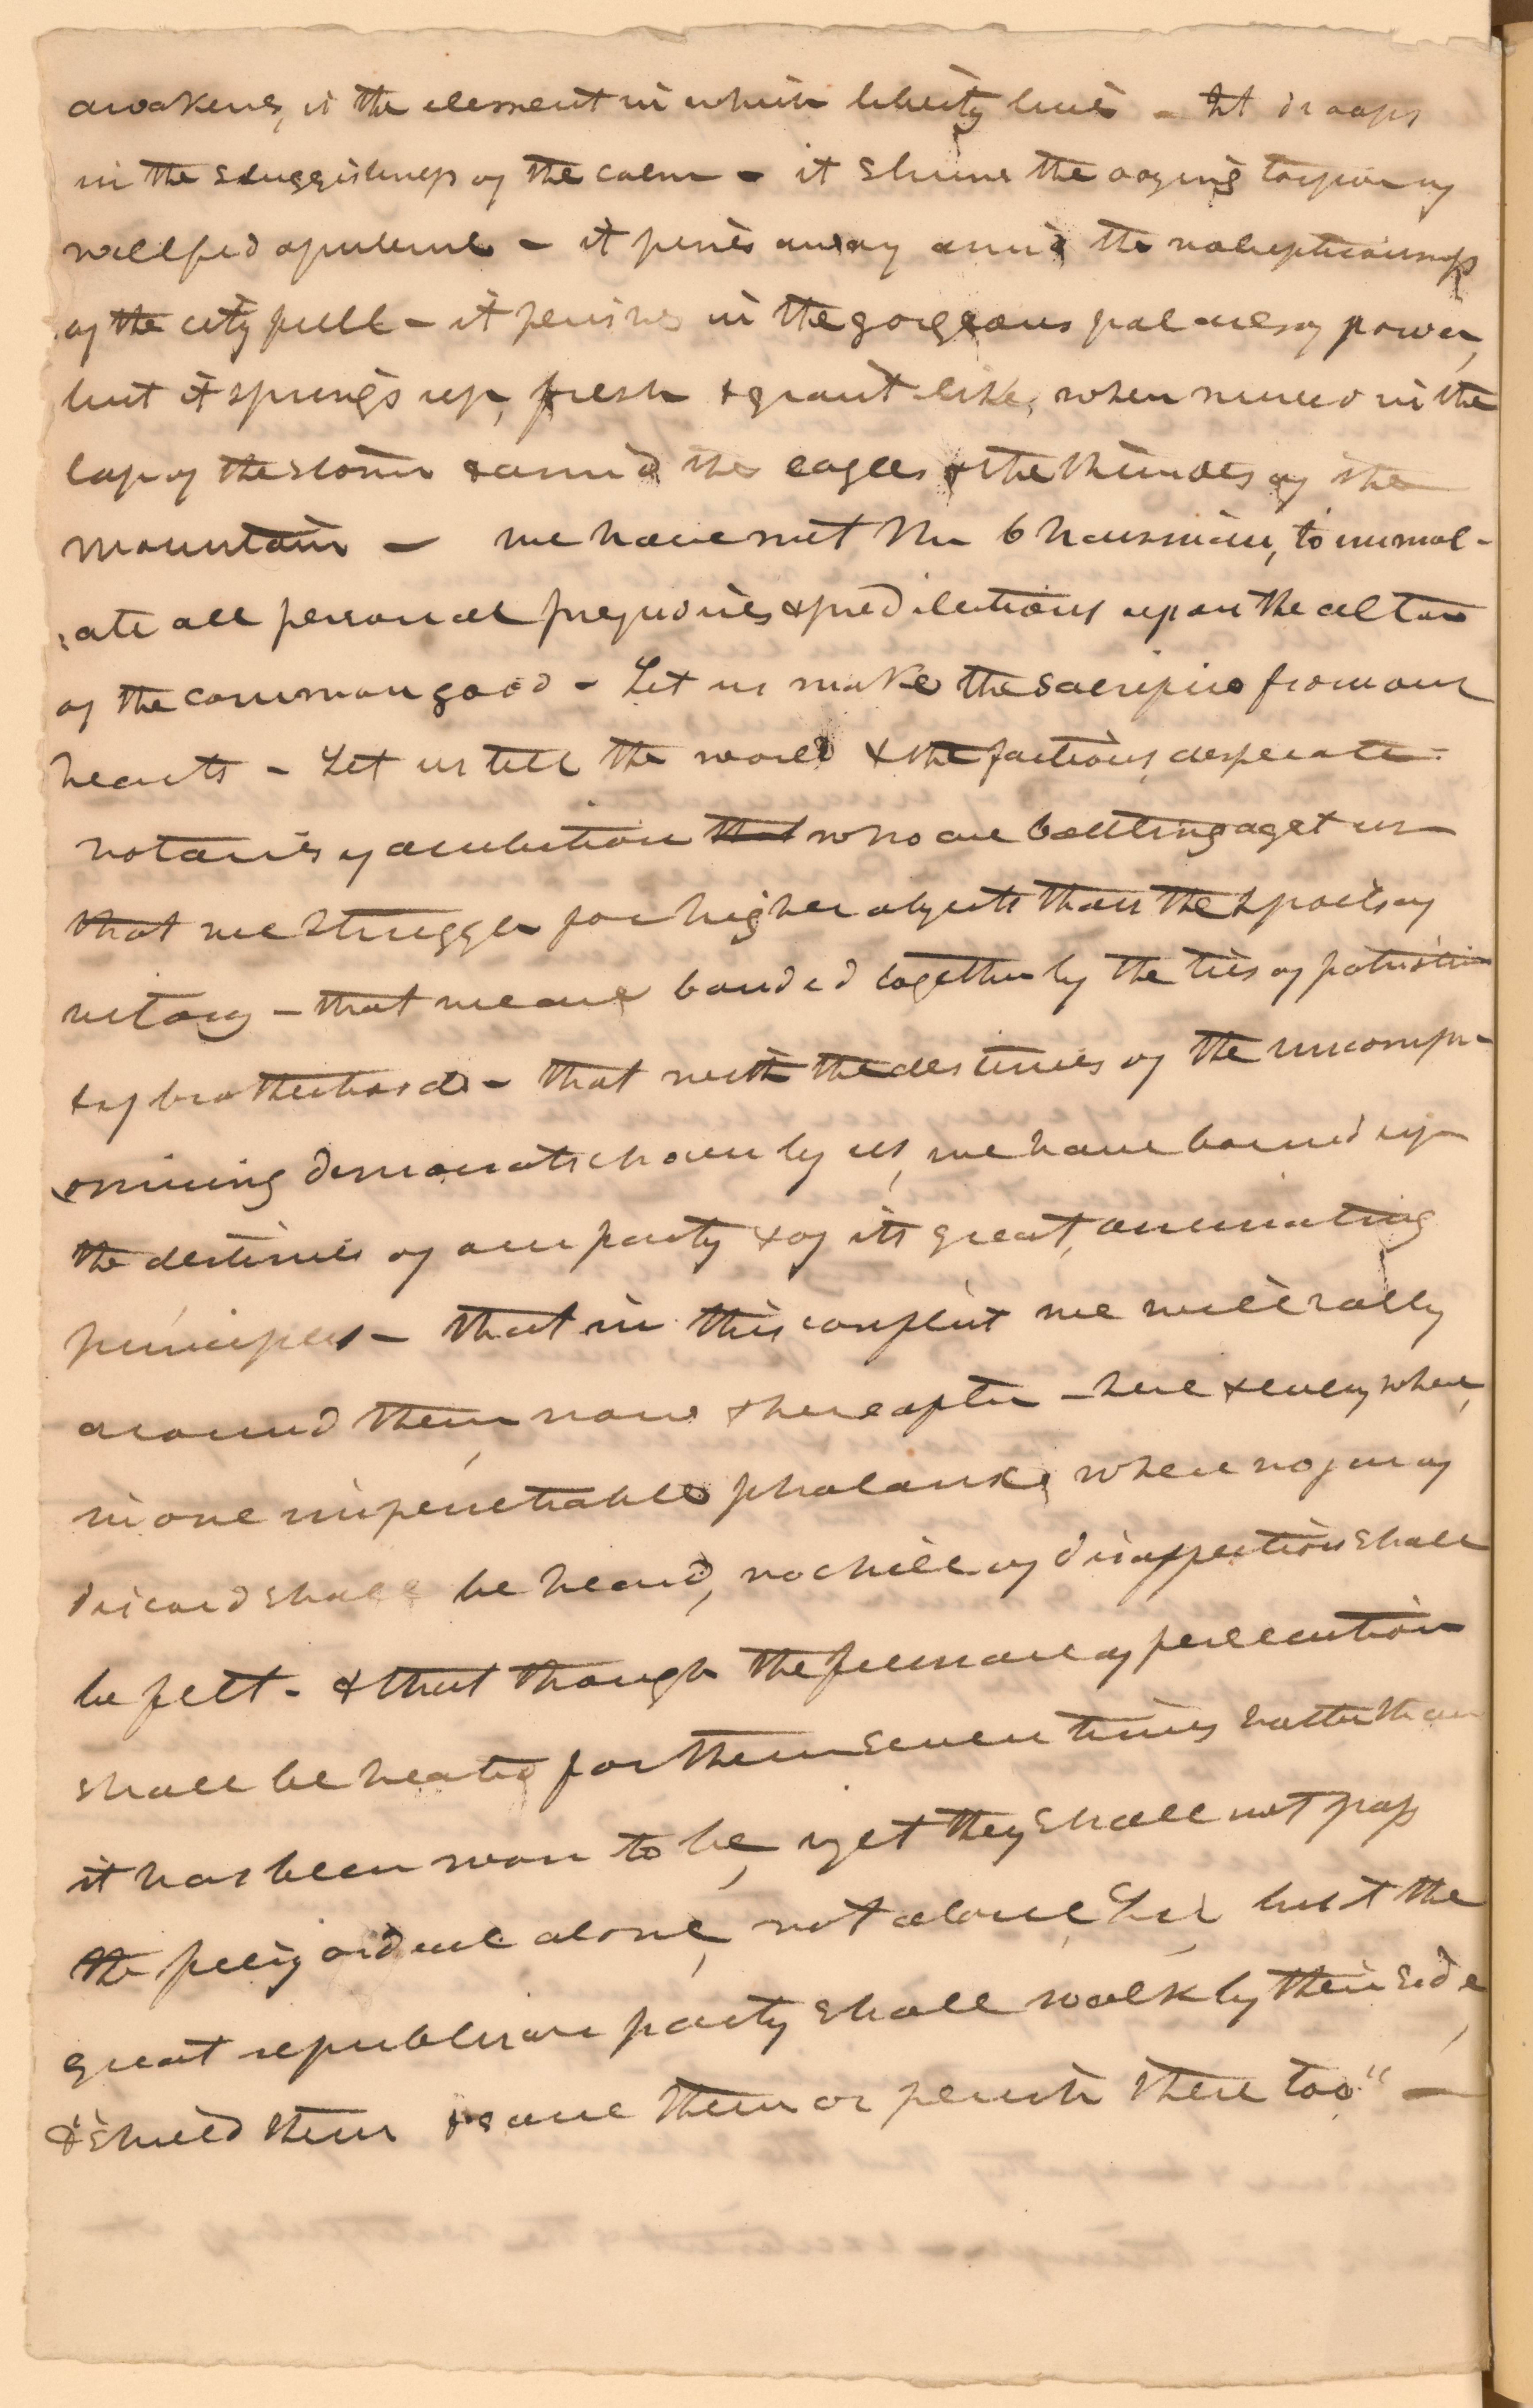 awakens, is the element in which liberty lives - It droops
in the sluggishness of the calm - it shuns the oozing torpor of
wellfed opulence - it pines away amid the voluptuousness
of the city full - it perishes in the gorgeous palaces of power,
but it springs up, fresh & giant like, when nursed in the
lap of the storm & amid the eagles & the thunders of the
mountain - we have met Mr to immol-
ate all personal prejudices & predilections upon the altar
of the common good - Let us make the sacrifice from our
hearts - Let us tell the world & the factious, desperate
votaries of ambition that who are battling agst us
that we struggle for higher objects than the spoils of
victory - that we are banded together by the ties of patriotism
& of brotherhood - that with the destinies of the uncompr-
omising democrats chosen by us, we have bound up
the destinies of our party & of its great, animating
principles - that in this conflict we will rally
around them, now & hereafter - here & every where,
in one impenetrable phalanx, where no jar of
discord shall be heard, no chill of disaffection shall
be felt - & that though the furnace of persecution
shall be heated for them seven times hotter than
it has been won to be, yet they shall not pass
the fiery ordeal alone, not alone, Sir, but the
great republican party shall walk by their side,
& "shield them & save them or perish there too" -